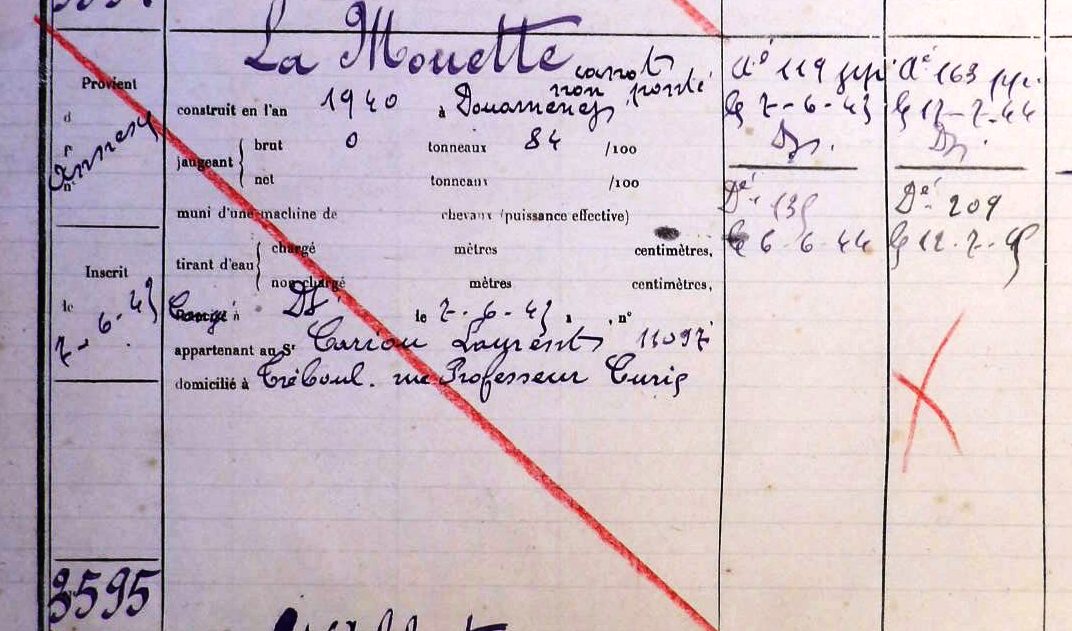 La Mouette
canot
non ponté
Provient
d
Annexe
n°
construit en l'an 1940 à Douarnenez
jaugeant { brut 0 tonneaux 84 /100
net tonneaux /100
muni d'une machine de chevaux (puissance effective)
tirant d'eau { chargé mètres centimètres,
non chargé mètres centimètres,
Inscrit
le
7-6-43
Congé à Dz. le 7-6-43, n°
appartenant au Sr Cariou Laurent 11097
domicilié à Tréboul. rue Professeur Curie
Dé 119
le 7-6-43
Dz.
Dé 135
le 6-6-44
Dé 163
le 17-7-44
Dz.
Dé 209
le 12.7.45
3595